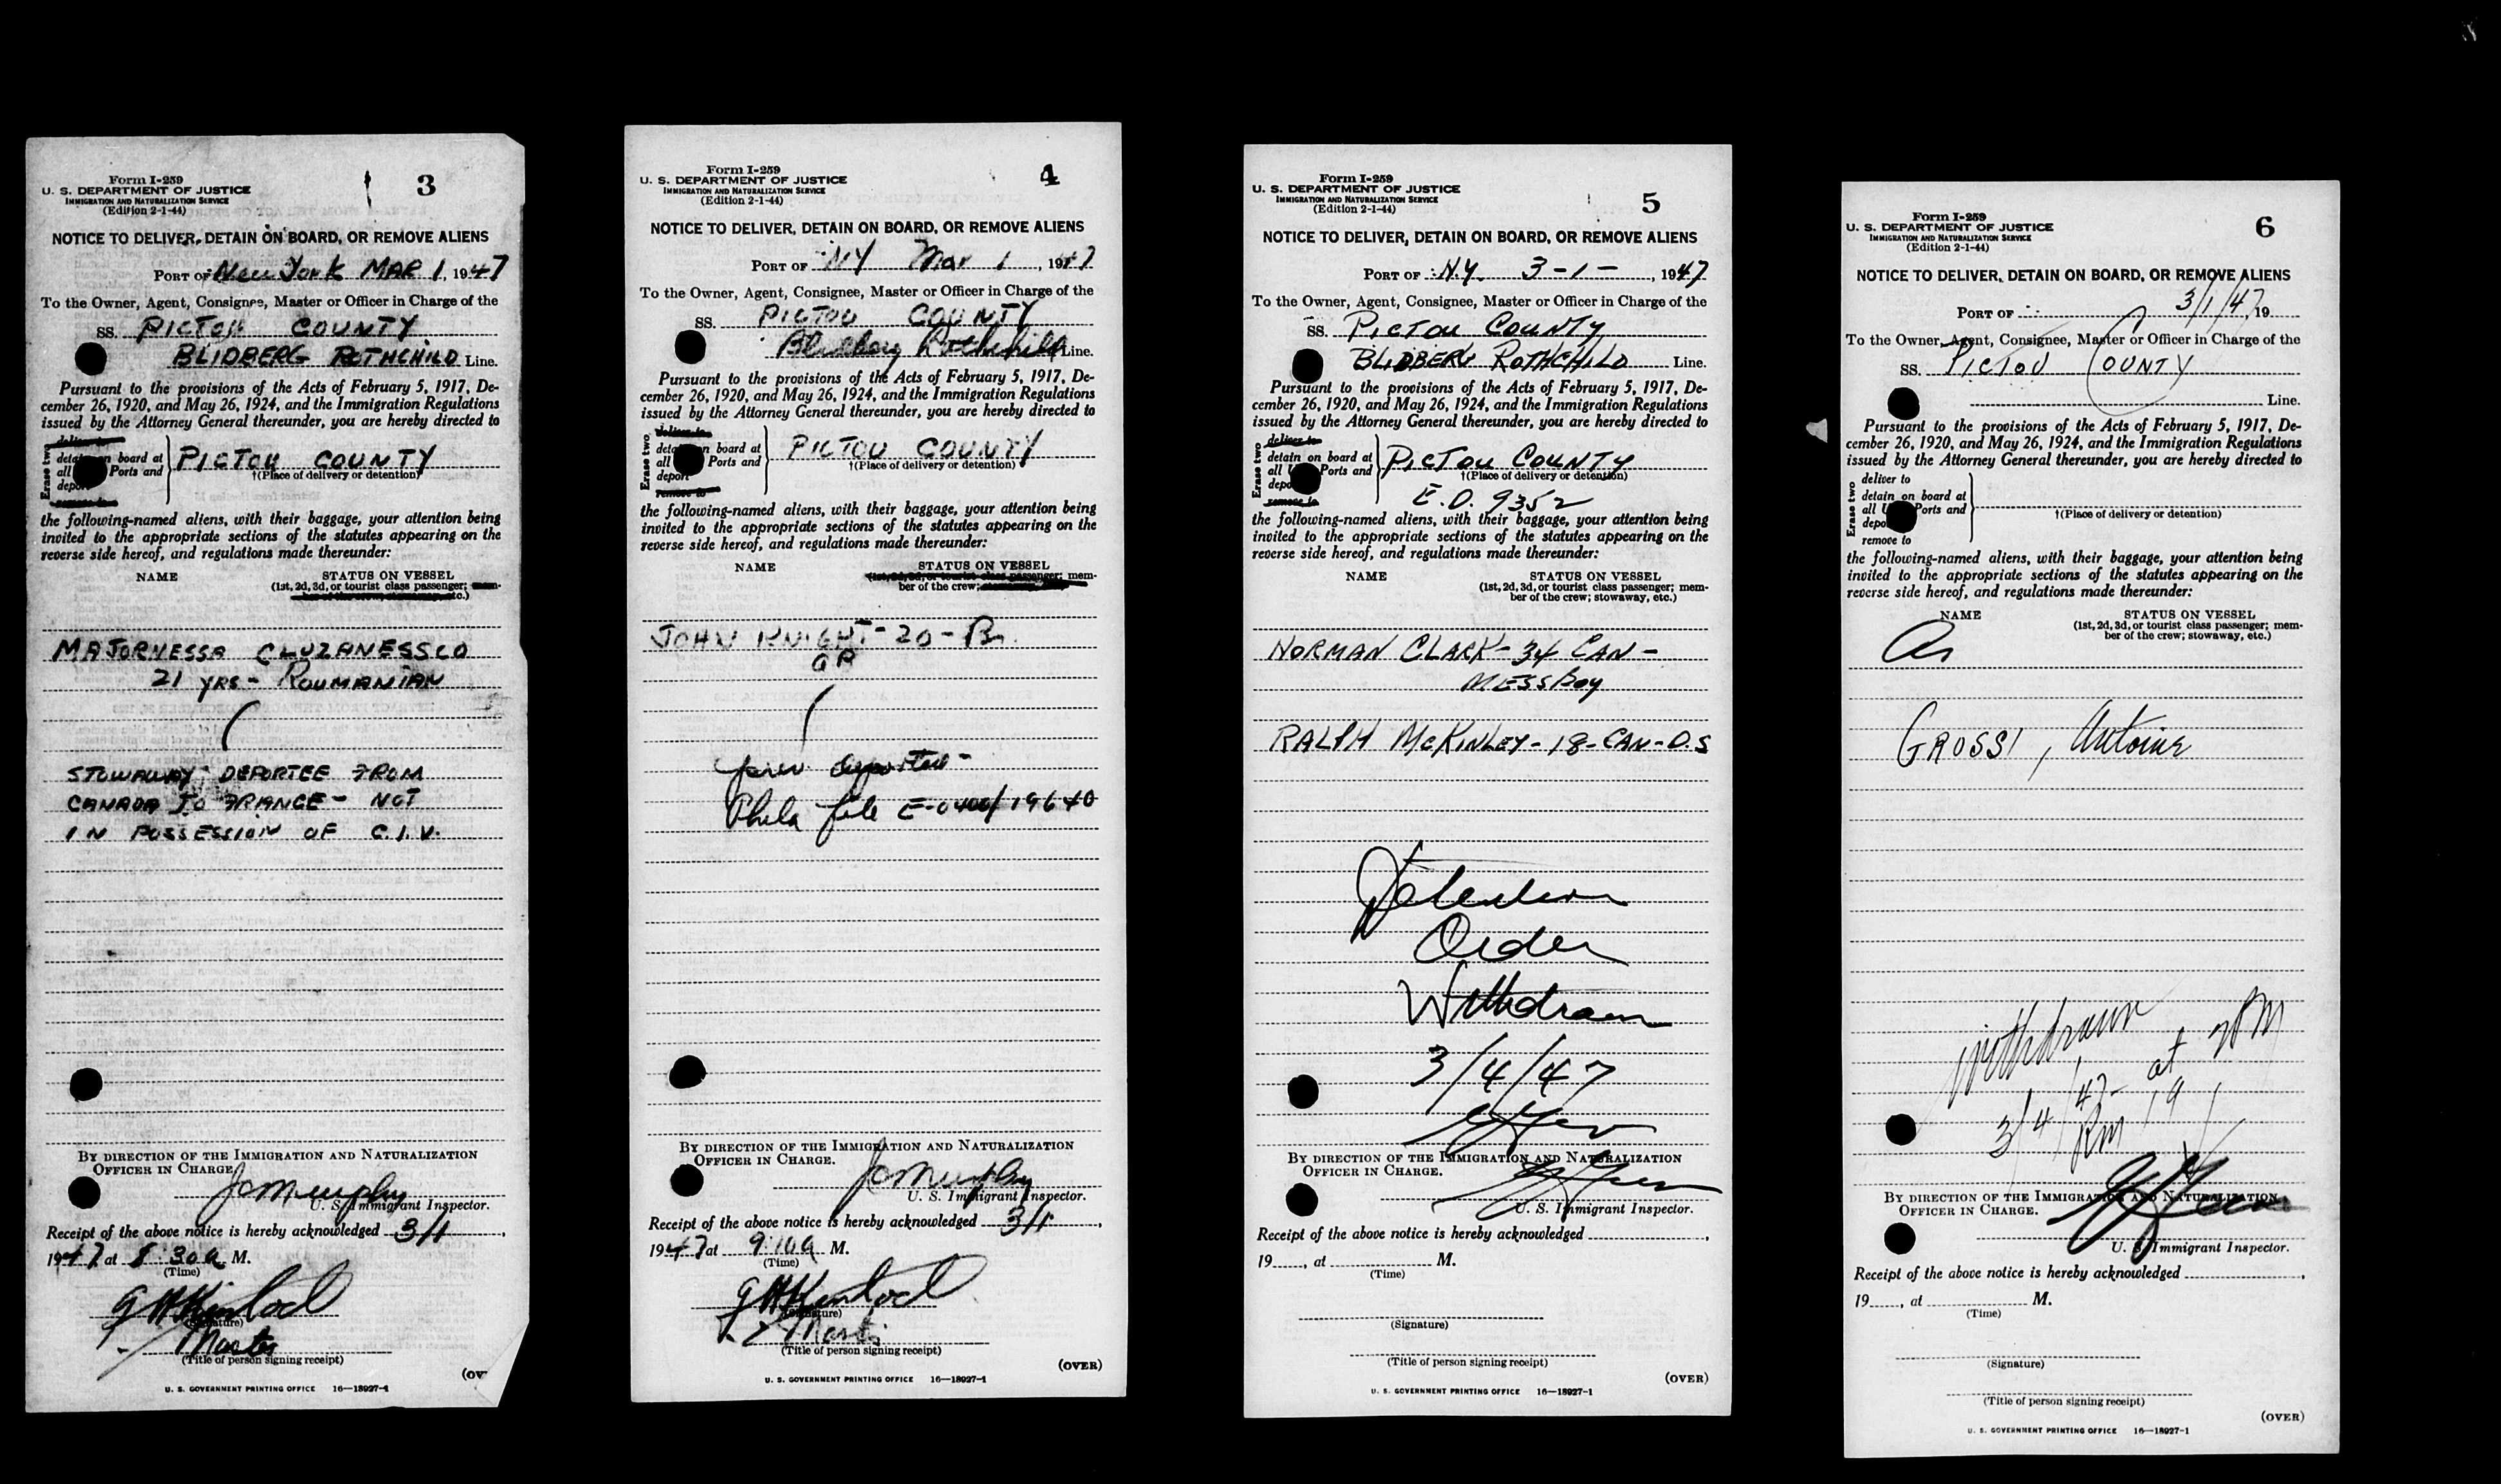 Form I-259
U. S. DEPARTMENT OF JUSTICE
IMMIGRATION AND NATURALIZATION SERVICE
(Edition 2-1-44)
3
NOTICE TO DELIVER, DETAIN ON BOARD, OR REMOVE ALIENS
PORT OF New York MAR 1, 1947
To the Owner, Agent, Consignee, Master or Officer in Charge of the
SS. PICTOU COUNTY
BLIDBERG ROTHCHILD Line.
Pursuant to the provisions of the Acts of February 5, 1917, De-
cember 26, 1920, and May 26, 1924, and the Immigration Regulations
issued by the Attorney General thereunder, you are hereby directed to
Erase two
deliver to
detain on board at
all Ports and
deport
remove to
PICTOU COUNTY
†(Place of delivery or detention)
the following-named aliens, with their baggage, your attention being
invited to the appropriate sections of the statutes appearing on the
reverse side hereof, and regulations made thereunder:
NAME STATUS ON VESSEL
(1st, 2d, 3d, or tourist class passenger; mem-
ber of the crew; stowaway, etc.)
MAJORNESSA CLUZANESSCO
21 YRS - ROUMANIAN
STOWAWAY - DEPORTEE FROM
CANADA TO FRANCE - NOT
IN POSSESSION OF C.I.V.
BY DIRECTION OF THE IMMIGRATION AND NATURALIZATION
OFFICER IN CHARGE.
JC Murphy
U. S. Immigrant Inspector.
Receipt of the above notice is hereby acknowledged 3/1,
1947 at 8:30 a M.
(Time)
G H Kinloch
(Signature)
Master
(Title of person signing receipt)
(OV
U. S. GOVERNMENT PRINTING OFFICE 16—18927-1
Form I-259
U. S. DEPARTMENT OF JUSTICE
IMMIGRATION AND NATURALIZATION SERVICE
(Edition 2-1-44)
4
NOTICE TO DELIVER, DETAIN ON BOARD, OR REMOVE ALIENS
PORT OF NY Mar 1, 1947
To the Owner, Agent, Consignee, Master or Officer in Charge of the
SS. PICTOU COUNTY
Blidberg Rothchild Line.
Pursuant to the provisions of the Acts of February 5, 1917, De-
cember 26, 1920, and May 26, 1924, and the Immigration Regulations
issued by the Attorney General thereunder, you are hereby directed to
Erase two
deliver to
detain on board at
all Ports and
deport
remove to
PICTOU COUNTY
†(Place of delivery or detention)
the following-named aliens, with their baggage, your attention being
invited to the appropriate sections of the statutes appearing on the
reverse side hereof, and regulations made thereunder:
NAME STATUS ON VESSEL
(1st, 2d, 3d, or tourist class passenger; mem-
ber of the crew; stowaway, etc.)
JOHN KNIGHT - 20 - Br.
prev deported -
Phila file E-0400/19640
BY DIRECTION OF THE IMMIGRATION AND NATURALIZATION
OFFICER IN CHARGE.
JC Murphy
U. S. Immigrant Inspector.
Receipt of the above notice is hereby acknowledged 3/1,
1947 at 9:10 a M.
(Time)
G H Kinloch
(Signature)
Master
(Title of person signing receipt)
(OVER)
U. S. GOVERNMENT PRINTING OFFICE 16—18927-1
Form I-259
U. S. DEPARTMENT OF JUSTICE
IMMIGRATION AND NATURALIZATION SERVICE
(Edition 2-1-44)
5
NOTICE TO DELIVER, DETAIN ON BOARD, OR REMOVE ALIENS
PORT OF N.Y. 3-1-, 1947
To the Owner, Agent, Consignee, Master or Officer in Charge of the
SS. PICTOU COUNTY
BLIDBERG ROTHCHILD Line.
Pursuant to the provisions of the Acts of February 5, 1917, De-
cember 26, 1920, and May 26, 1924, and the Immigration Regulations
issued by the Attorney General thereunder, you are hereby directed to
Erase two
deliver to
detain on board at
all U Ports and
depo
remove to
PICTOU COUNTY
†(Place of delivery or detention)
E.D. 9352
the following-named aliens, with their baggage, your attention being
invited to the appropriate sections of the statutes appearing on the
reverse side hereof, and regulations made thereunder:
NAME STATUS ON VESSEL
(1st, 2d, 3d, or tourist class passenger; mem-
ber of the crew; stowaway, etc.)
NORMAN CLARK - 34 CAN -
MESSBOY
RALPH McKINLEY - 18 - CAN - D.S
Detention
Order
Withdrawn
3/4/47
BY DIRECTION OF THE IMMIGRATION AND NATURALIZATION
OFFICER IN CHARGE.
U. S. Immigrant Inspector.
Receipt of the above notice is hereby acknowledged ,
19 , at M.
(Time)
(Signature)
(Title of person signing receipt)
(OVER)
U. S. GOVERNMENT PRINTING OFFICE 16—18927-1
Form I-259
U. S. DEPARTMENT OF JUSTICE
IMMIGRATION AND NATURALIZATION SERVICE
(Edition 2-1-44)
6
NOTICE TO DELIVER, DETAIN ON BOARD, OR REMOVE ALIENS
PORT OF 3/1/47, 19
To the Owner, Agent, Consignee, Master or Officer in Charge of the
SS. PICTOU COUNTY
Line.
Pursuant to the provisions of the Acts of February 5, 1917, De-
cember 26, 1920, and May 26, 1924, and the Immigration Regulations
issued by the Attorney General thereunder, you are hereby directed to
Erase two
deliver to
detain on board at
all U Ports and
depo
remove to
†(Place of delivery or detention)
the following-named aliens, with their baggage, your attention being
invited to the appropriate sections of the statutes appearing on the
reverse side hereof, and regulations made thereunder:
NAME STATUS ON VESSEL
(1st, 2d, 3d, or tourist class passenger; mem-
ber of the crew; stowaway, etc.)
GROSSI, Antoine
Withdrawn
at 2 PM
3/4/47
BY DIRECTION OF THE IMMIGRATION AND NATURALIZATION
OFFICER IN CHARGE.
U. S. Immigrant Inspector.
Receipt of the above notice is hereby acknowledged ,
19 , at M.
(Time)
(Signature)
(Title of person signing receipt)
(OVER)
U. S. GOVERNMENT PRINTING OFFICE 16—18927-1